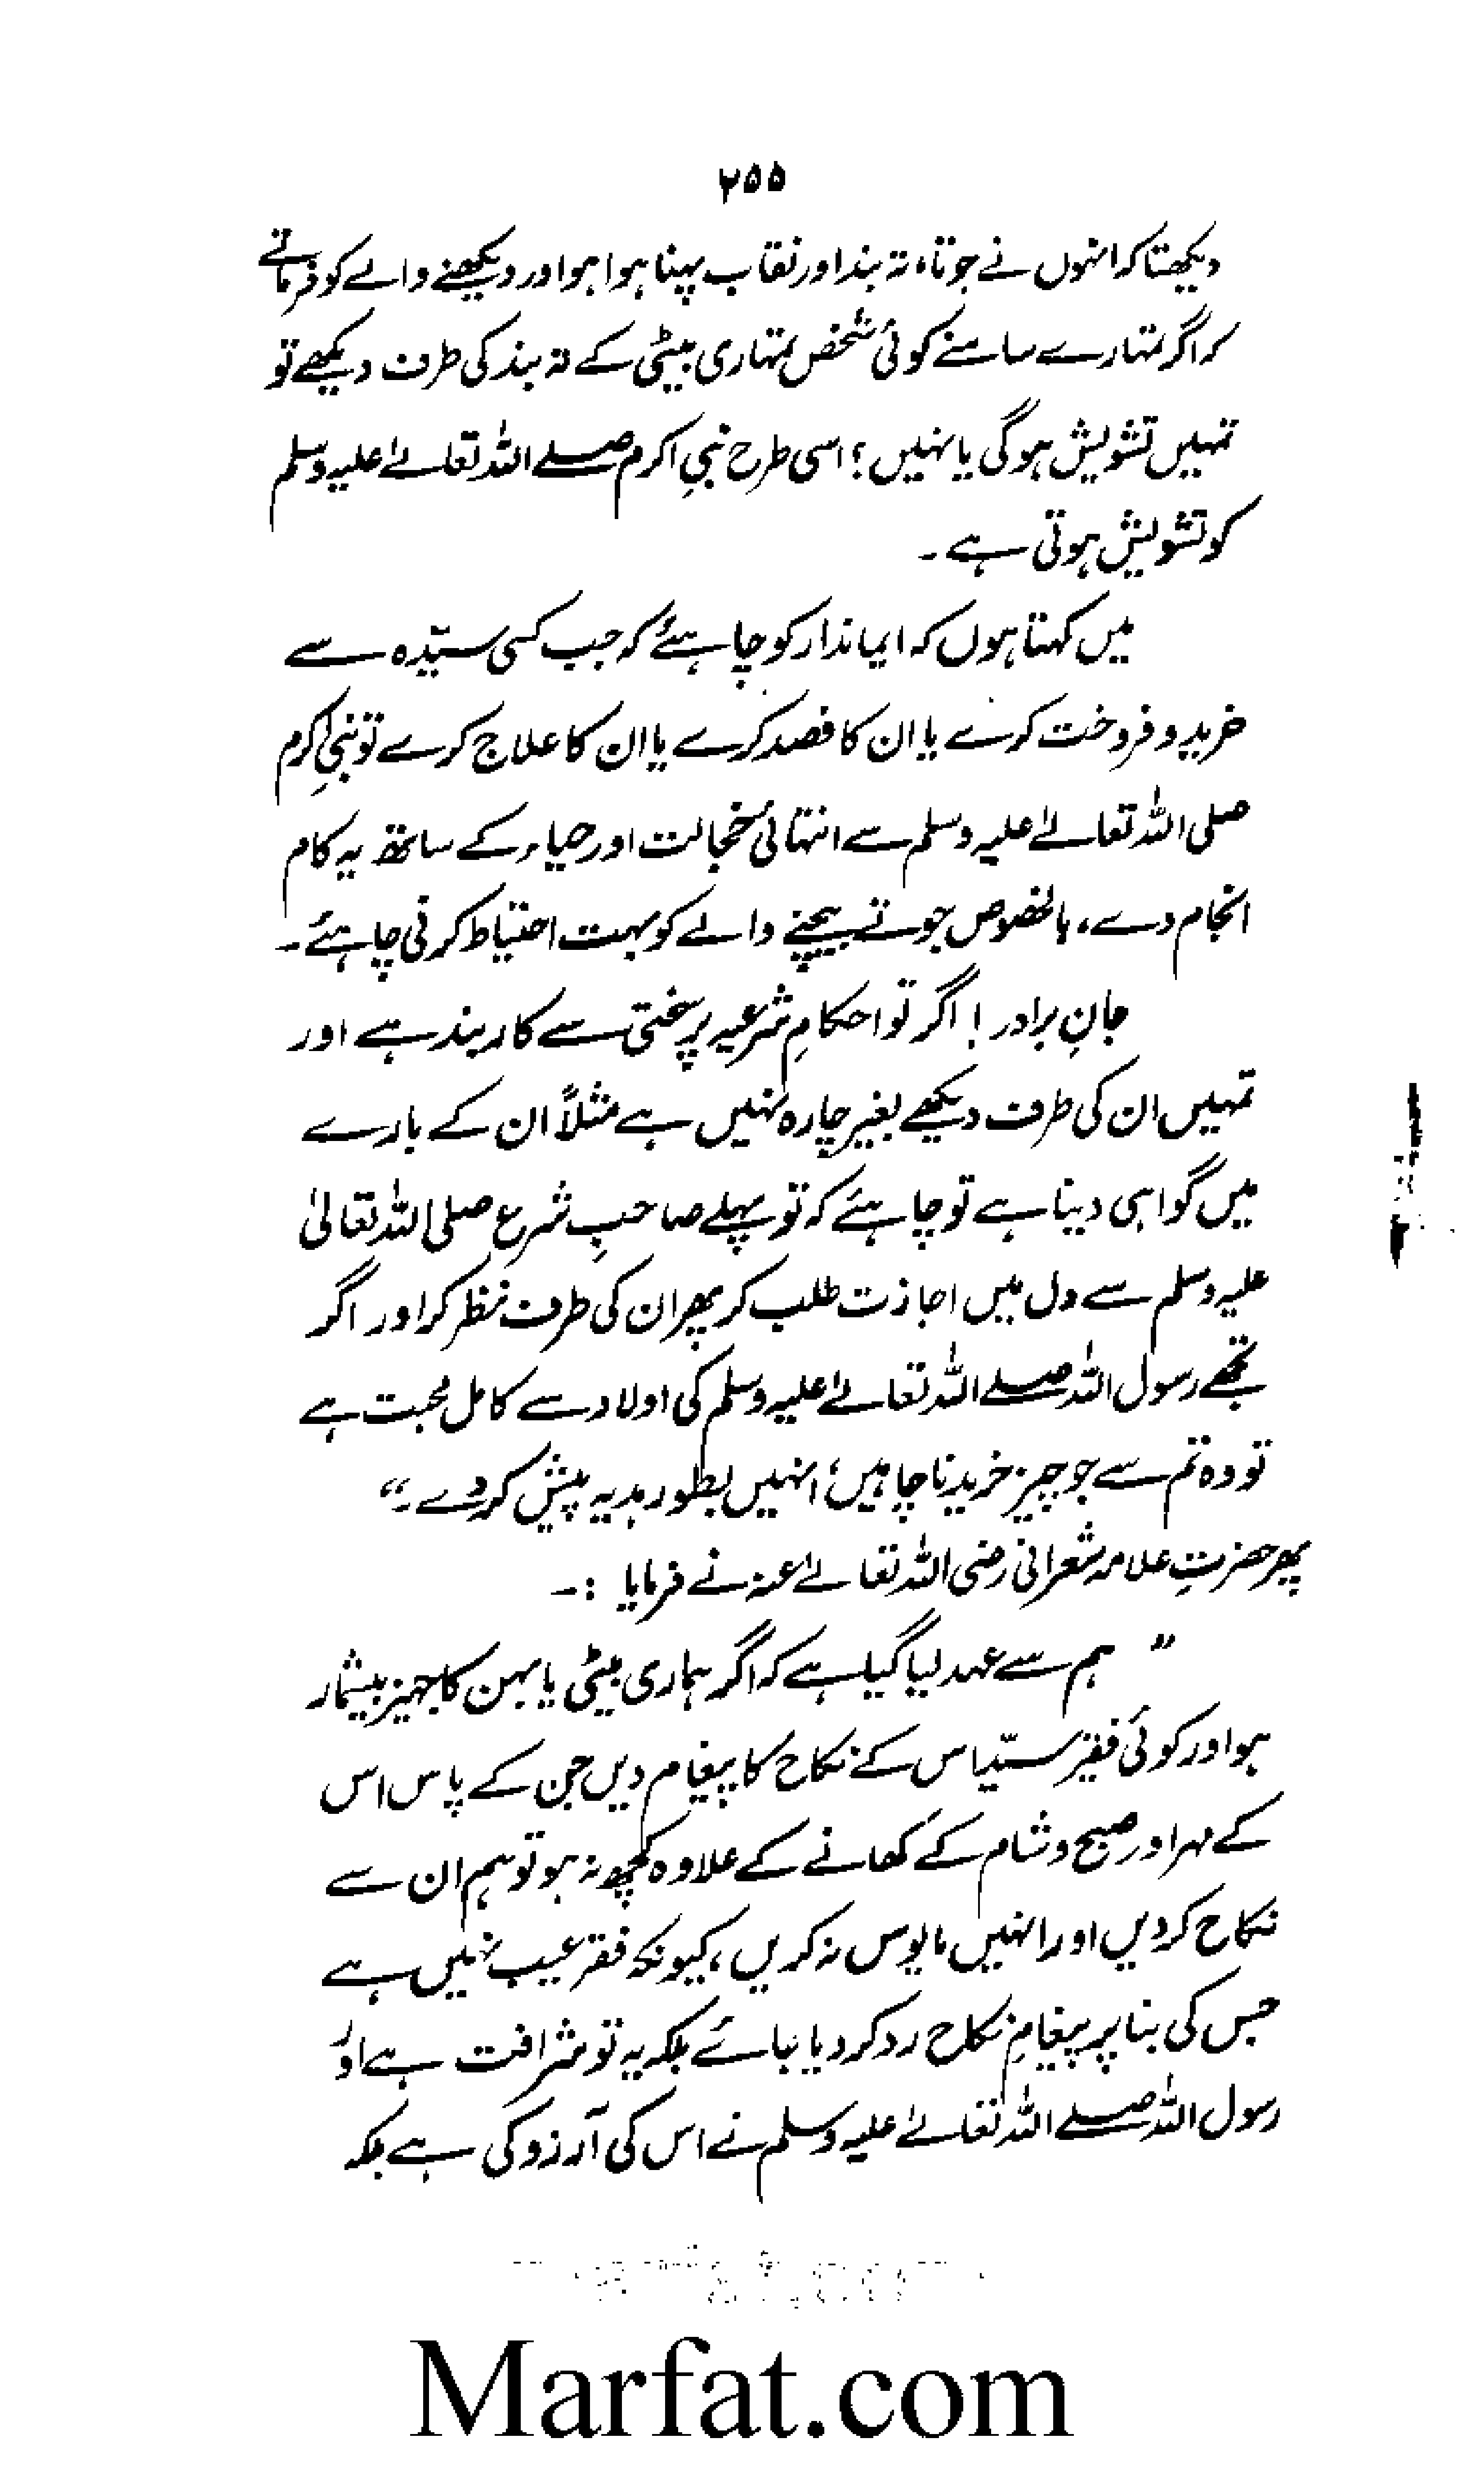 ۲۵۵
دیکھتا کہ انہوں نے جوتا، تہ بند اور نقاب پہنا ہوا ہو اور دیکھنے والے کو فرماتے
کہ اگر تمہارے سامنے کوئی شخص تمہاری بیٹی کے تہ بند کی طرف دیکھے تو
تمہیں تشویش ہوگی یا نہیں؟ اسی طرح نبیِ اکرم صلے اللہ تعالےٰ علیہ وسلم
کو تشویش ہوتی ہے۔
میں کہتا ہوں کہ ایماندار کو چاہئے کہ جب کسی سیّدہ سے
خرید و فروخت کرے یا ان کا فصد کرے یا ان کا علاج کرے تو نبیِ اکرم
صلی اللہ تعالےٰ علیہ وسلم سے انتہائی خجالت اور حیاء کے ساتھ یہ کام
انجام دے، بالخصوص جوتے بیچنے والے کو بہت احتیاط کرنی چاہئے۔
جانِ برادر! اگر تو احکامِ شرعیہ پر سختی سے کاربند ہے اور
تمہیں ان کی طرف دیکھے بغیر چارہ نہیں ہے مثلاً ان کے بارے
میں گواہی دینا ہے تو چاہئے کہ تو پہلے صاحبِ شرع صلی اللہ تعالیٰ
علیہ وسلم سے دل میں اجازت طلب کر پھر ان کی طرف نظر کر اور اگر
تجھے رسول اللہ صلے اللہ تعالےٰ علیہ وسلم کی اولاد سے کامل محبت ہے
تو وہ تم سے جو چیز خریدنا چاہیں، انہیں بطور ہدیہ پیش کر دے۔“
پھر حضرتِ علامہ شعرانی رضی اللہ تعالےٰ عنہ نے فرمایا :۔
” ہم سے عہد لیا گیا ہے کہ اگر ہماری بیٹی یا بہن کا جہیز بیشمار
ہو اور کوئی فقیر سیّد اس کے نکاح کا پیغام دیں جن کے پاس اس
کے مہر اور صبح و شام کے کھانے کے علاوہ کچھ نہ ہو تو ہم ان سے
نکاح کر دیں اور انہیں مایوس نہ کریں، کیونکہ فقر عیب نہیں ہے
جس کی بنا پر پیغامِ نکاح رد کر دیا جائے بلکہ یہ تو شرافت ہے اور
رسول اللہ صلے اللہ تعالےٰ علیہ وسلم نے اس کی آرزو کی ہے بلکہ
Marfat.com